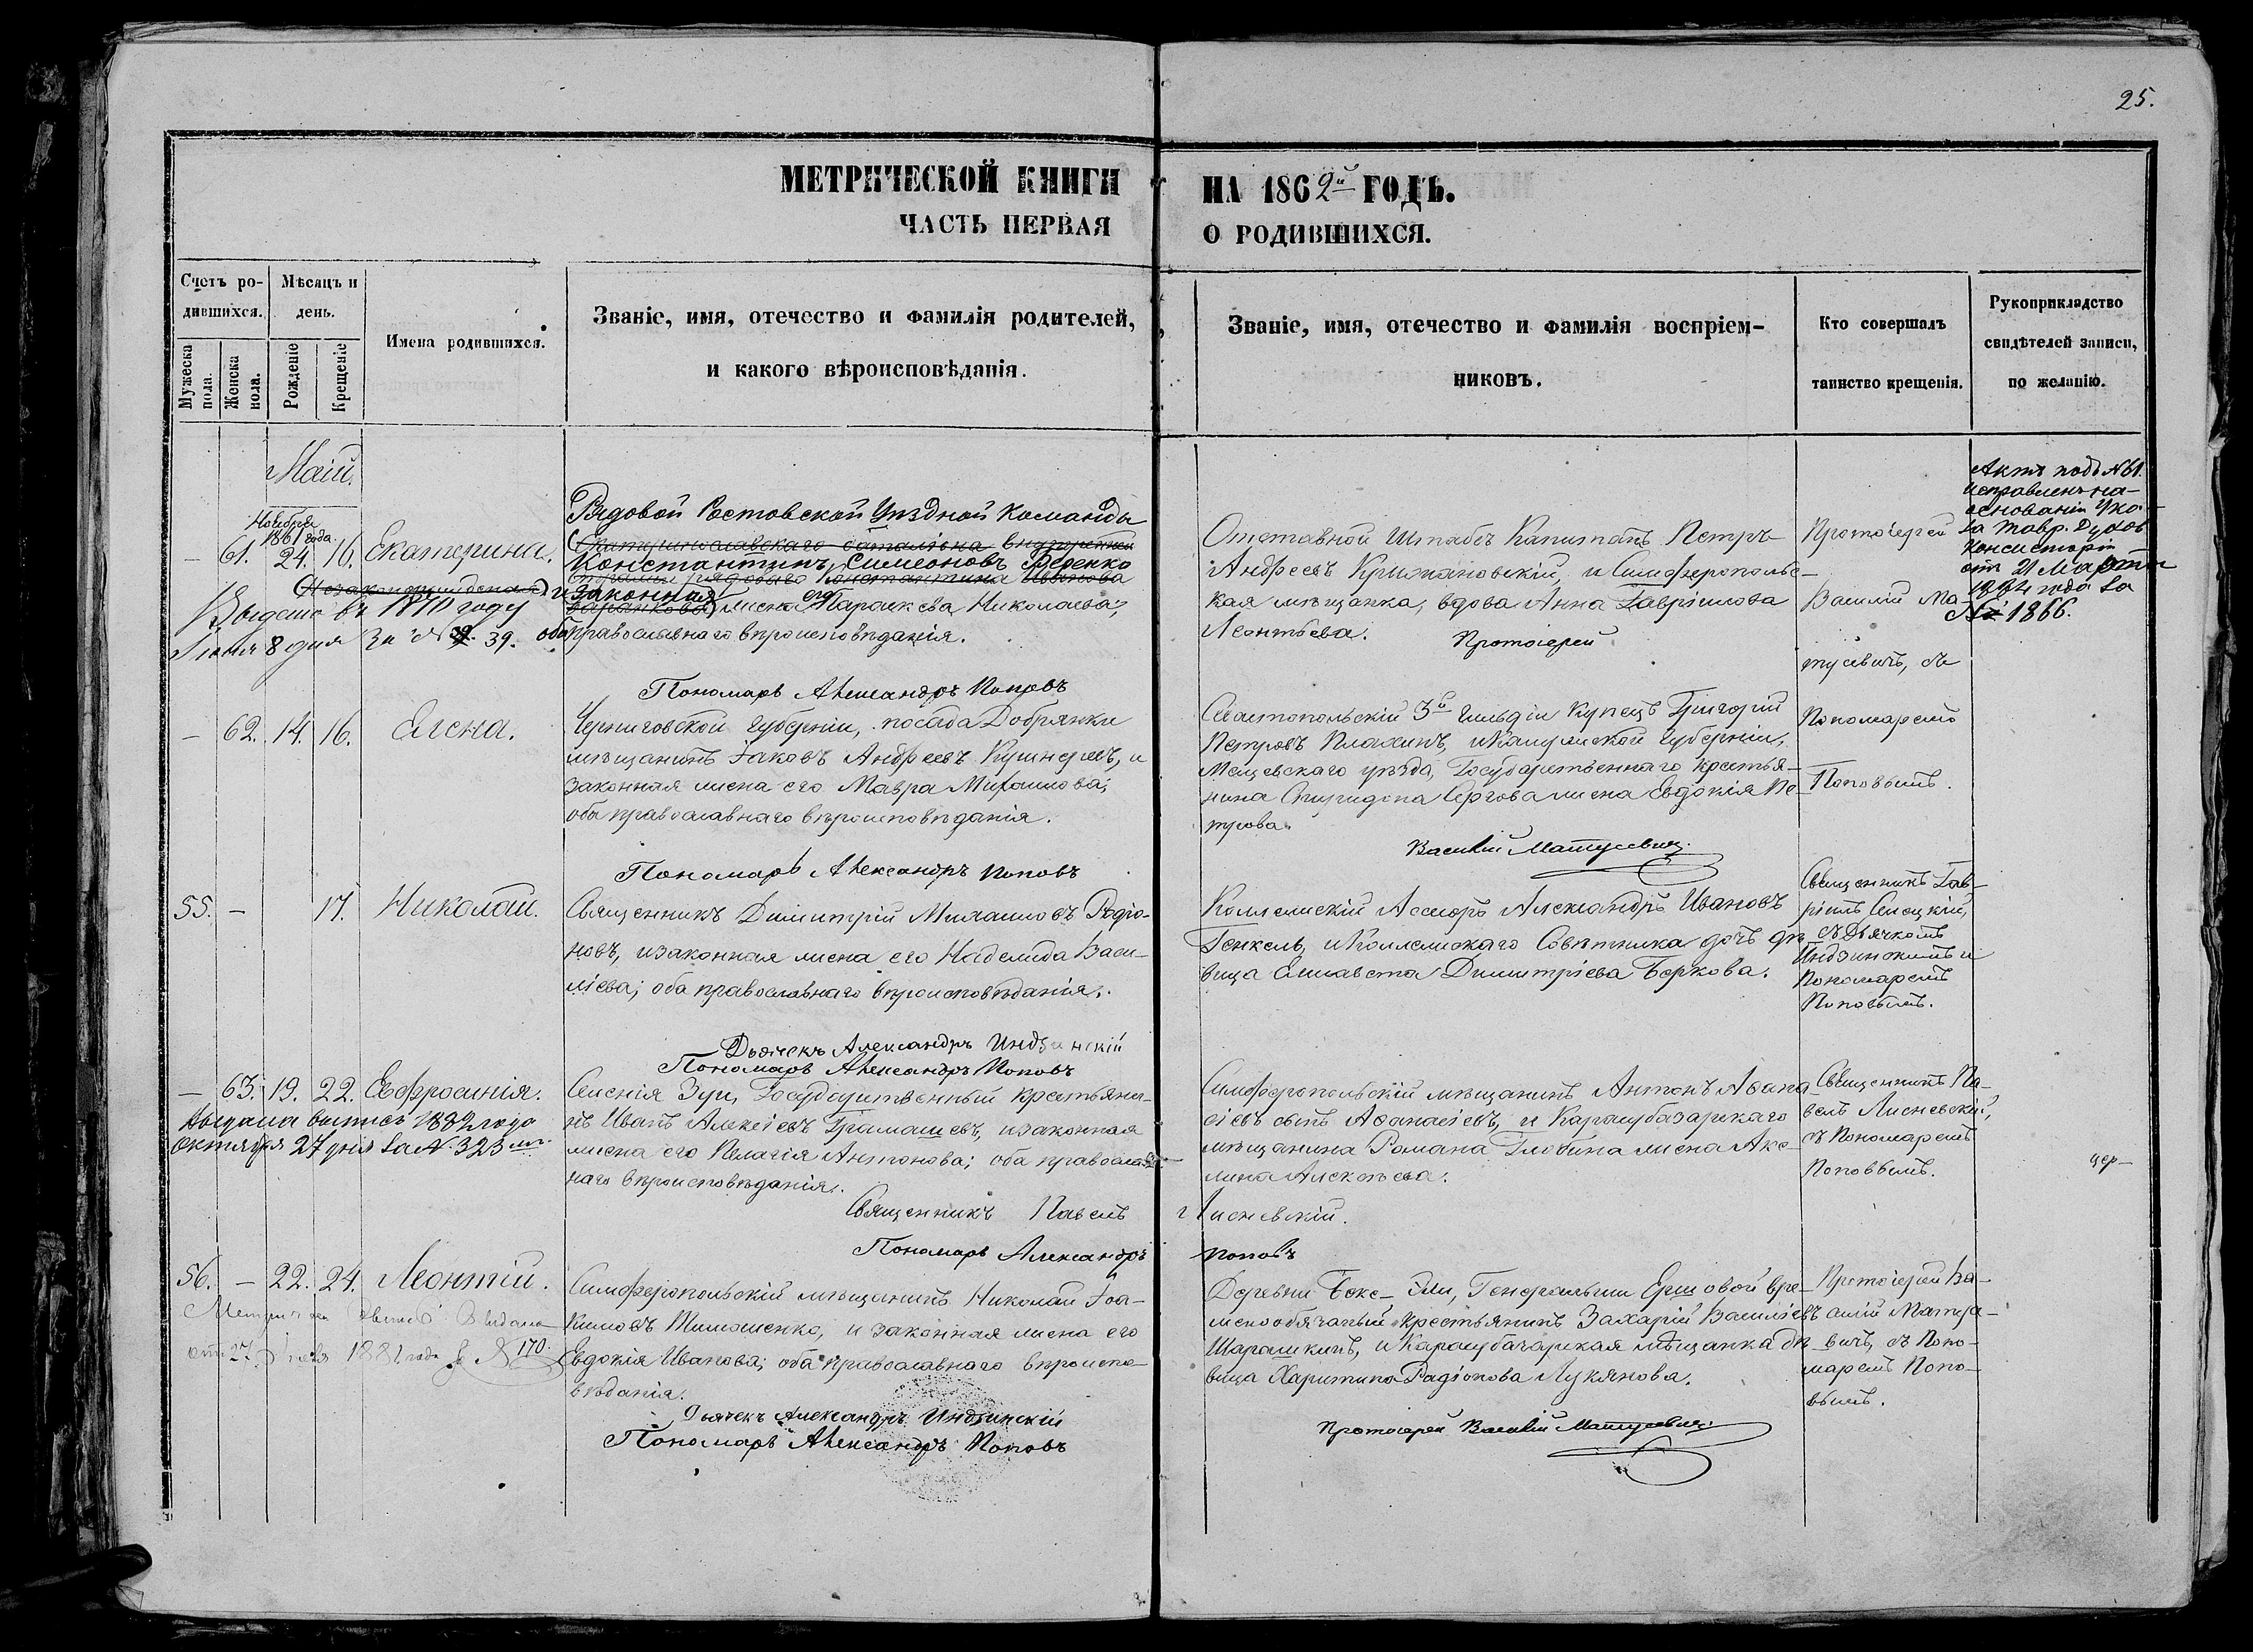 25.
МЕТРИЧЕСКОЙ КНИГИ НА 1862й ГОДЪ.
ЧАСТЬ ПЕРВАЯ О РОДИВШИХСЯ.
Счетъ родившихся.
Мужеска пола.
Женска пола.
Мѣсяцъ и день.
Рожденіе
Крещеніе
Имена родившихся.
Званіе, имя, отечество и фамилія родителей,
и какого вѣроисповѣданія.
Званіе, имя, отечество и фамилія воспріем-
никовъ.
Кто совершалъ
таинство крещенія.
Рукоприкладство
свидѣтелей записи,
по желанію.
Маій.
Ноября
1861 года
– 61. 24. 16. Екатерина.
(Незаконнорожденная)
Выдано въ 1870 году
Іюня 8 дня За № 39.
Рядовой Ростовской Уѣздной Команды
(Екатеринославскаго баталіона внутренней
Константинъ Симеоновъ Феденко
стражи рядоваго Константина Иванова
и законная
жена его Параскева Николаева;
оба православнаго вѣроисповѣданія.
Отставной Штабсъ Капитанъ Петръ
Андреевъ Крыжановскій, и Симферопольс-
кая мѣщанка, вдова Анна Гавріилова
Леонтьева.
Протоіерей
Протоіерей
Василій Ма-
тусевичъ, съ
Пономаремъ
Поповымъ.
Актъ подъ №61.
исправленъ на
основаніи Ука-
за Тавр. Духов
Консисторіи
от 21 Марта
1884 года за
№ 1866.
Пономарь Александръ Поповъ
– 62. 14. 16. Елена.
Черниговской губерніи, посада Добрянки
мѣщанинъ Іаковъ Андреевъ Кушнеревъ, и
законная жена его Мавра Михаилова;
оба православнаго вѣроисповѣданія.
Севастопольскій 3й гильдіи Купецъ Григорій
Петровъ Плахинъ, и Калужской губерніи,
Мещевскаго уѣзда, Государственнаго крестья-
нина Спиридона Сергѣева жена Евдокія Пе-
трова.
Василій Матусевичъ
Пономарь Александръ Поповъ
55. – 17. Николай.
Священникъ Димитрій Михаиловъ Родіо-
новъ, и законная жена его Надежда Васи-
ліева; оба православнаго вѣроисповѣданія.
Коллежскій Ассесоръ Александръ Ивановъ
Генкель, и Коллежскаго Совѣтника дочь дѣ-
вица Елисавета Димитріева Беркова.
Священникъ Гав-
ріилъ
съ Дьячкомъ
Индзинскимъ и
Пономаремъ
Поповымъ.
Дьячекъ Александръ Индзинскій
Пономарь Александръ Поповъ
– 63. 19. 22. Евфросинія.
Выдана выпись 1892 года
октября 27 дня за № 323
Селенія Зуи, Государственный крестьяни-
нъ Иванъ Алексіевъ Грамашевъ, и законная
жена его Пелагія Антонова; оба православ-
наго вѣроисповѣданія.
Симферопольскій мѣщанинъ Антонъ Аѳана-
сіевъ сынъ Аѳанасіевъ, и Карасубазарскаго
мѣщанина Романа Глобина жена Аки-
лина Алексѣева.
Священникъ Па-
велъ Лисневскій,
съ Пономаремъ
Поповымъ.
цер-
Священникъ Павелъ Лисневскій.
Пономарь Александръ Поповъ
56. – 22. 24. Леонтій.
Выдано
1881 года № 170.
Симферопольскій мѣщанинъ Николай Іоа-
кимовъ Тимошенко, и законная жена его
Евдокія Иванова; оба православнаго вѣроиспо-
вѣданія.
Деревни Бекс-Эли, Генеральши Ершовой вре-
менообязанный крестьянинъ Захарій Василіевъ
Шарашкинъ, и Карасубазарская мѣщанка дѣ-
вица Харитина Радіонова Лукянова.
Протоіерей Ва-
силій Матусе-
вичъ, съ Поно-
маремъ Попо-
вымъ.
Дьячекъ Александръ Индзинскій
Пономарь Александръ Поповъ
Протоіерей Василій Матусевичъ